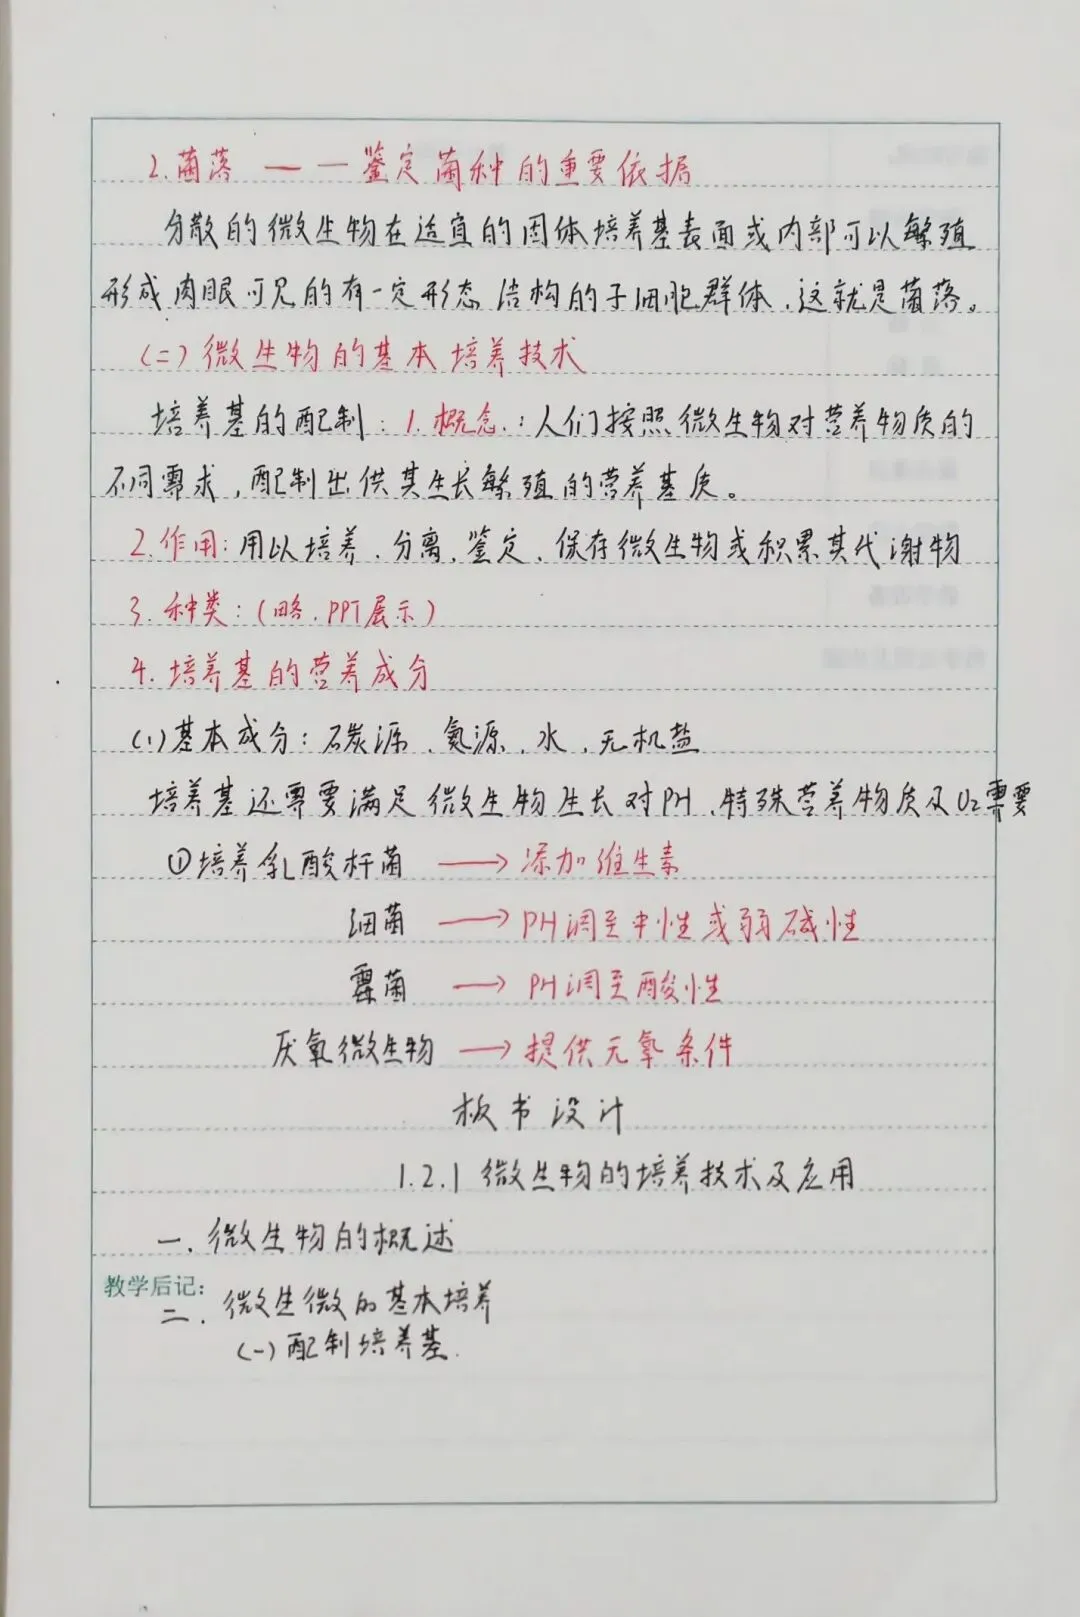 2.菌落 — — 鉴定菌种的重要依据
分散的微生物在适宜的固体培养基表面或内部可以繁殖
形成肉眼可见的有一定形态结构的子细胞群体,这就是菌落。
(二)微生物的基本培养技术
培养基的配制:1.概念:人们按照微生物对营养物质的
不同需求,配制出供其生长繁殖的营养基质。
2.作用:用以培养、分离、鉴定、保存微生物或积累其代谢物
3.种类:(略,PPT展示)
4.培养基的营养成分
(1)基本成分:碳源、氮源、水、无机盐
培养基还需要满足微生物生长对PH、特殊营养物质及O₂需要
①培养乳酸杆菌 → 添加维生素
细菌 → PH调至中性或弱碱性
霉菌 → PH调至酸性
厌氧微生物 → 提供无氧条件
板书设计
1.2.1微生物的培养技术及应用
一.微生物的概述
教学后记:
二.微生微的基本培养
(一)配制培养基.